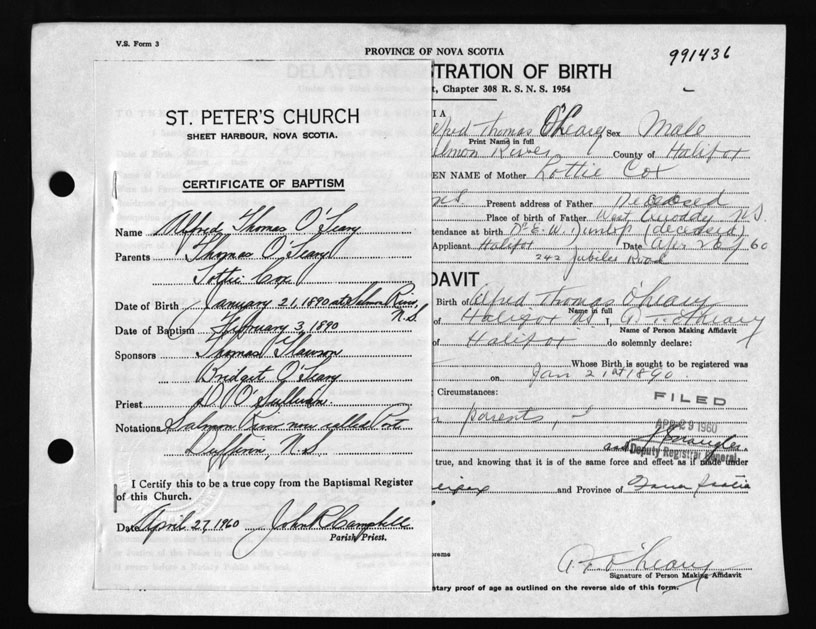 V.S. Form 3
PROVINCE OF NOVA SCOTIA
991436
STRATION OF BIRTH
Chapter 308 R. S. N. S. 1954
ST. PETER'S CHURCH
SHEET HARBOUR, NOVA SCOTIA.
CERTIFICATE OF BAPTISM
Name Alfred Thomas O'Leary
Parents Thomas O'Leary
Lottie Cox
Date of Birth January 21, 1890 at Salmon River, N.S.
Date of Baptism February 3, 1890
Sponsors Thomas
Bridget O'Leary
Priest D O'Sullivan
Notations Salmon River now called Port
Dufferin, N.S.
I Certify this to be a true copy from the Baptismal Register
of this Church.
Date April 27, 1960 John R Campbell
Parish Priest.
lfred Thomas O'Leary Sex Male
Print Name in full
lmon River County of Halifax
EN NAME of Mother Lottie Cox
N.S. Present address of Father Deceased
Place of birth of Father West Quoddy N.S.
ttendance at birth Dr E. W. Dunlop (deceased)
Applicant Halifax Date Apr 26/60
242 Jubilee Road
DAVIT
Birth of Alfred Thomas O'Leary
Name in full
of Halifax I, A T O'Leary
Name of Person Making Affidavit
of Halifax do solemnly declare:
Whose Birth is sought to be registered was
on Jan 21st 1890.
Circumstances:
FILED
parents, I
APR 29 1960
and Deputy Registrar General
true, and knowing that it is of the same force and effect as if made under
and Province of Nova Scotia
preme
A. T. O'Leary
Signature of Person Making Affidavit
tary proof of age as outlined on the reverse side of this form.